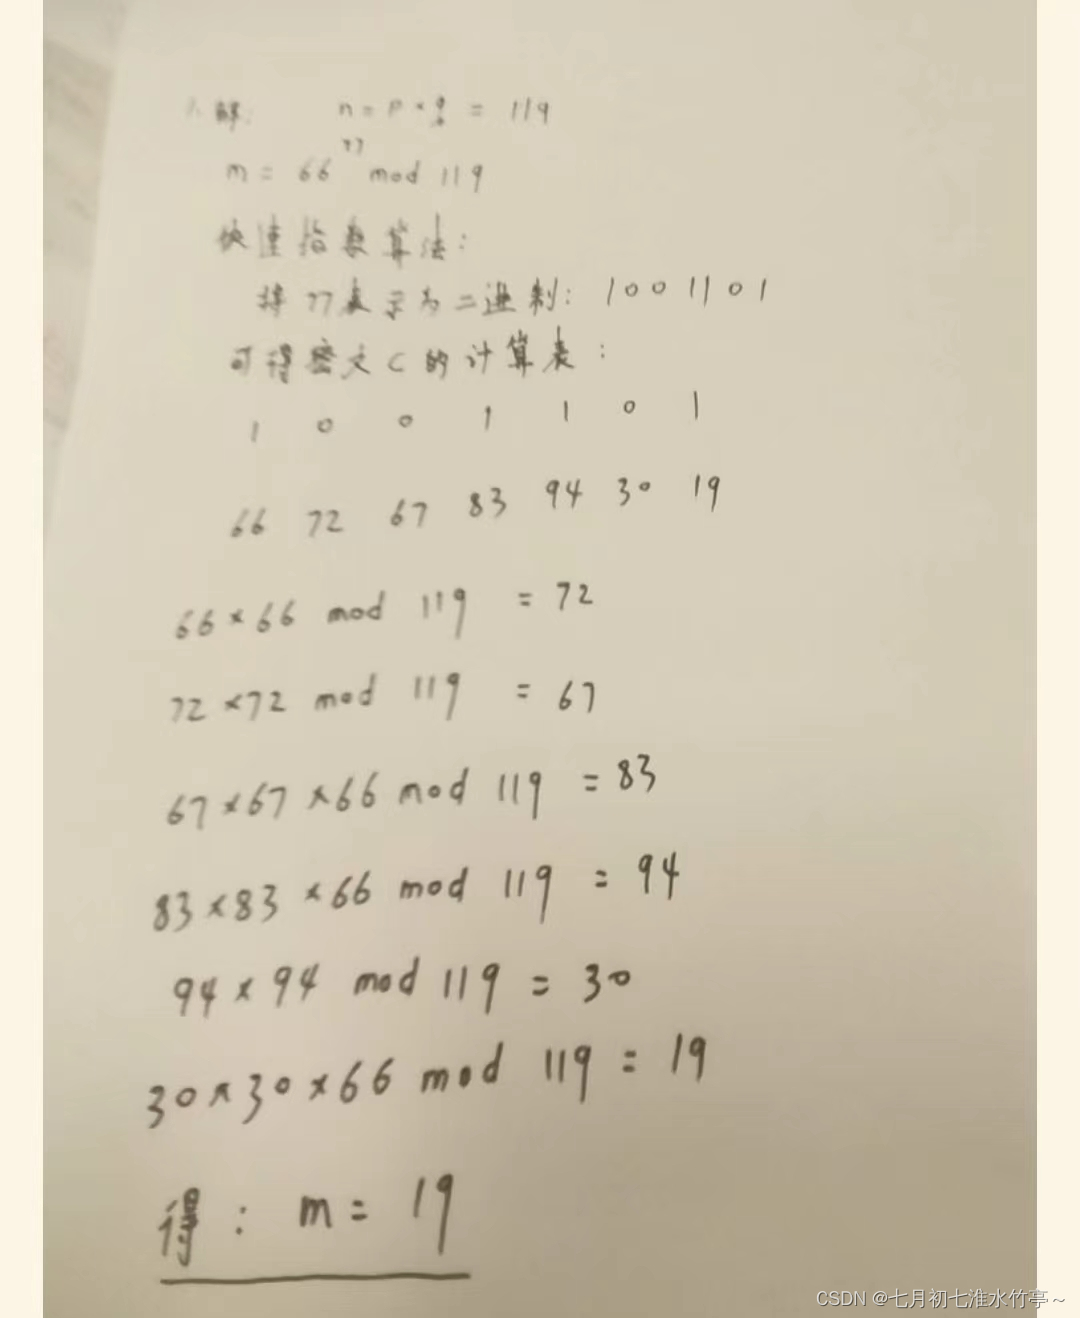 解: n = p × q = 119
m = 66^77 mod 119
快速指数算法:
将77表示为二进制: 1001101
可得密文C的计算表:
1 0 0 1 1 0 1
66 72 67 83 94 30 19
66×66 mod 119 = 72
72×72 mod 119 = 67
67×67×66 mod 119 = 83
83×83×66 mod 119 = 94
94×94 mod 119 = 30
30×30×66 mod 119 = 19
得: m = 19
CSDN @七月初七淮水竹亭~